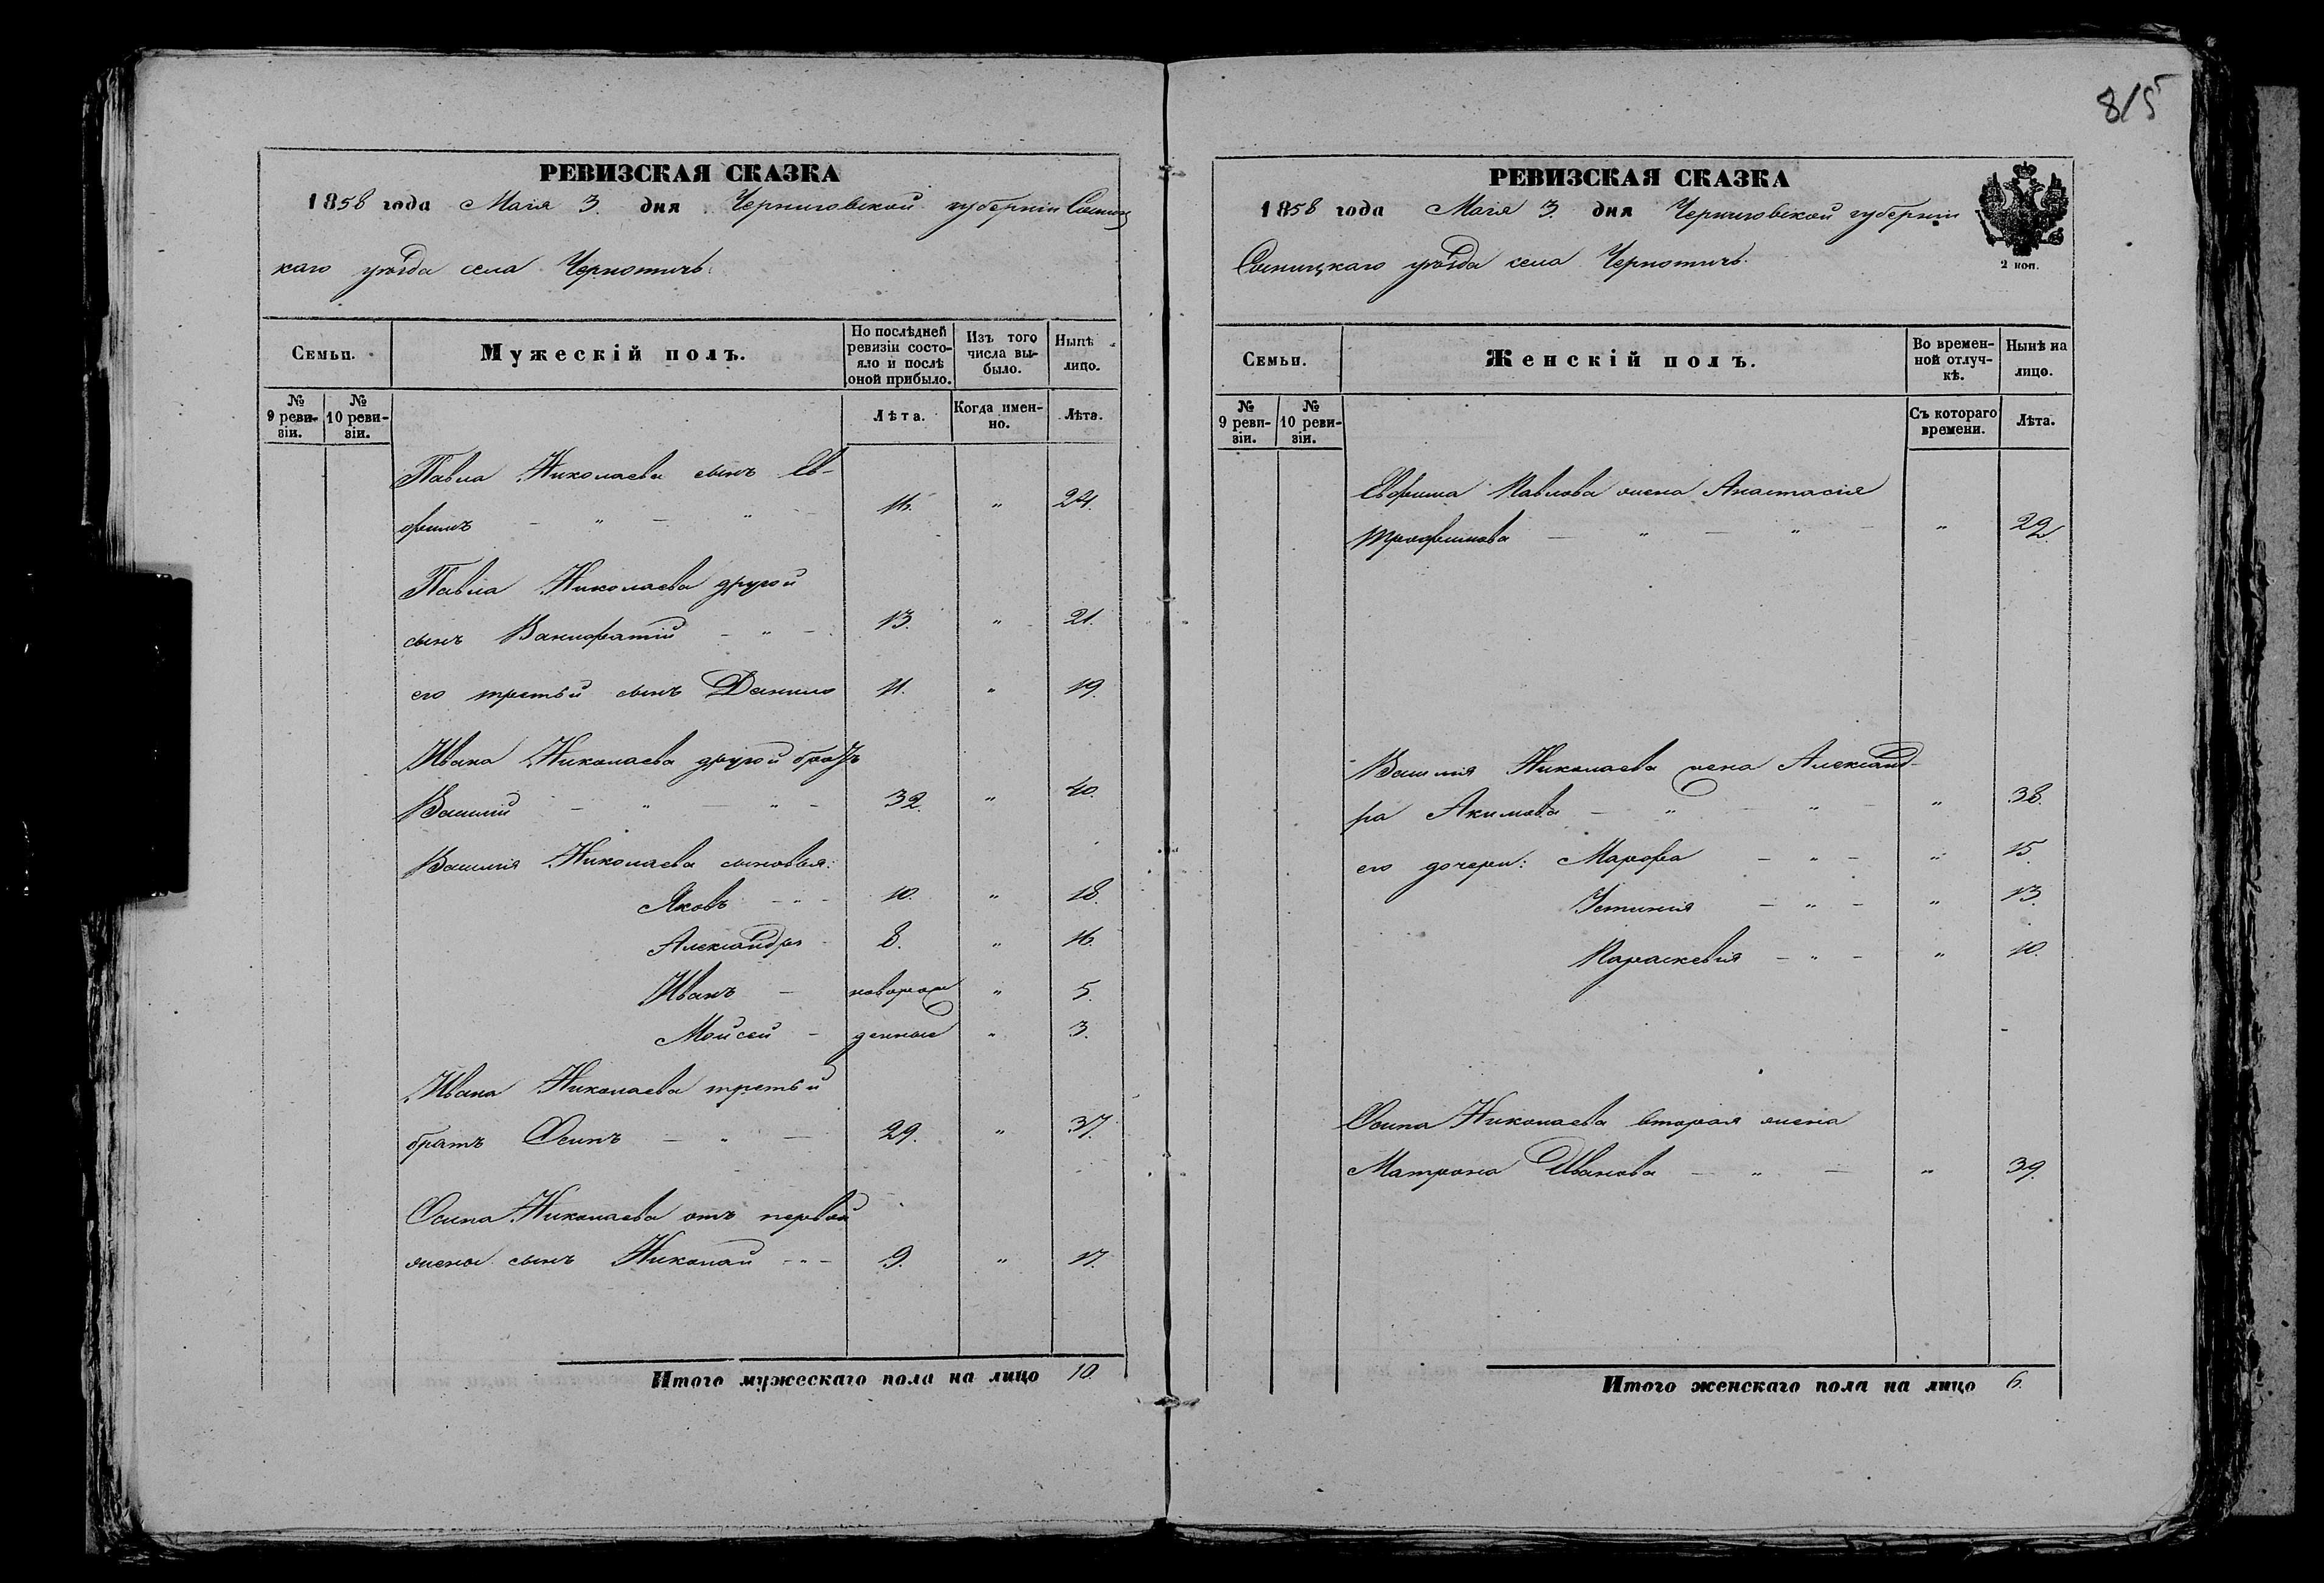 815
РЕВИЗСКАЯ СКАЗКА
1858 года Маія 3. дня Черниговской губерніи Сосниц
каго уѣзда села Чернотичь.
Семьи.
Мужескій полъ.
По послѣдней ревизіи состояло и послѣ оной прибыло.
Изъ того числа выбыло.
Нынѣ лицо.
№ 9 ревизіи.
№ 10 ревизіи.
Лѣта.
Когда именно.
Лѣта.
Павла Николаева сынъ Ев-
фимъ - " - " - 16. " 24.
Павла Николаева другой
сынъ - " - 13. " 21.
его третьй сынъ Данило 11. " 19.
Ивана Николаева другой братъ
Василій - " - " - 32. " 40.
Василія Николаева сыновья:
Яковъ - " - 10. " 18.
Александръ - 8. " 16.
Иванъ - новорож " 5.
Мойсей - денные " 3.
Ивана Николаева третьй
братъ Осипъ - " - 29. " 37.
Осипа Николаева отъ первой
жены сынъ Николай - " - 9. " 17.
Итого мужескаго пола на лицо 10.
РЕВИЗСКАЯ СКАЗКА
1858 года Маія 3. дня Черниговской губерніи
Сосницкаго уѣзда села Чернотичь.
2 коп.
Семьи.
Женскій полъ.
Во временной отлучкѣ.
Нынѣ на лицо.
№ 9 ревизіи.
№ 10 ревизіи.
Съ котораго времени.
Лѣта.
Евфима Павлова жена Анастасія
Трофимова - " - " - " 29.
Василія Николаева жена Александ-
ра Акимова - " - " - " 38.
его дочери: Марфа - " - " 15.
Устинія - " - " 13.
Параскевія - " - " 10.
Осипа Николаева вторая жена
Матрона Иванова - " - " 39.
Итого женскаго пола на лицо 6.